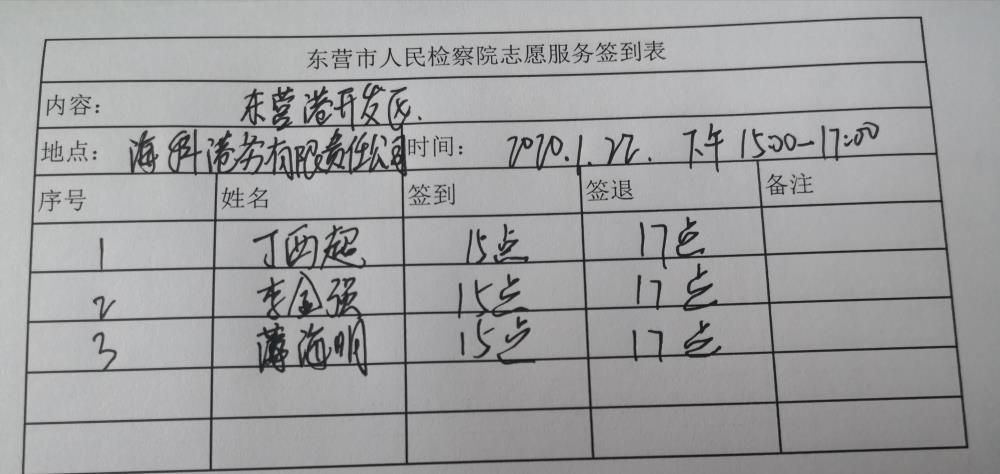 东营市人民检察院志愿服务签到表
内容: 东营港开发区.
地点: 海科港务有限责任公司 时间: 2020.1.22. 下午 15:00-17:00
序号 姓名 签到 签退 备注
1 丁西超 15点 17点
2 李金强 15点 17点
3 薄海明 15点 17点